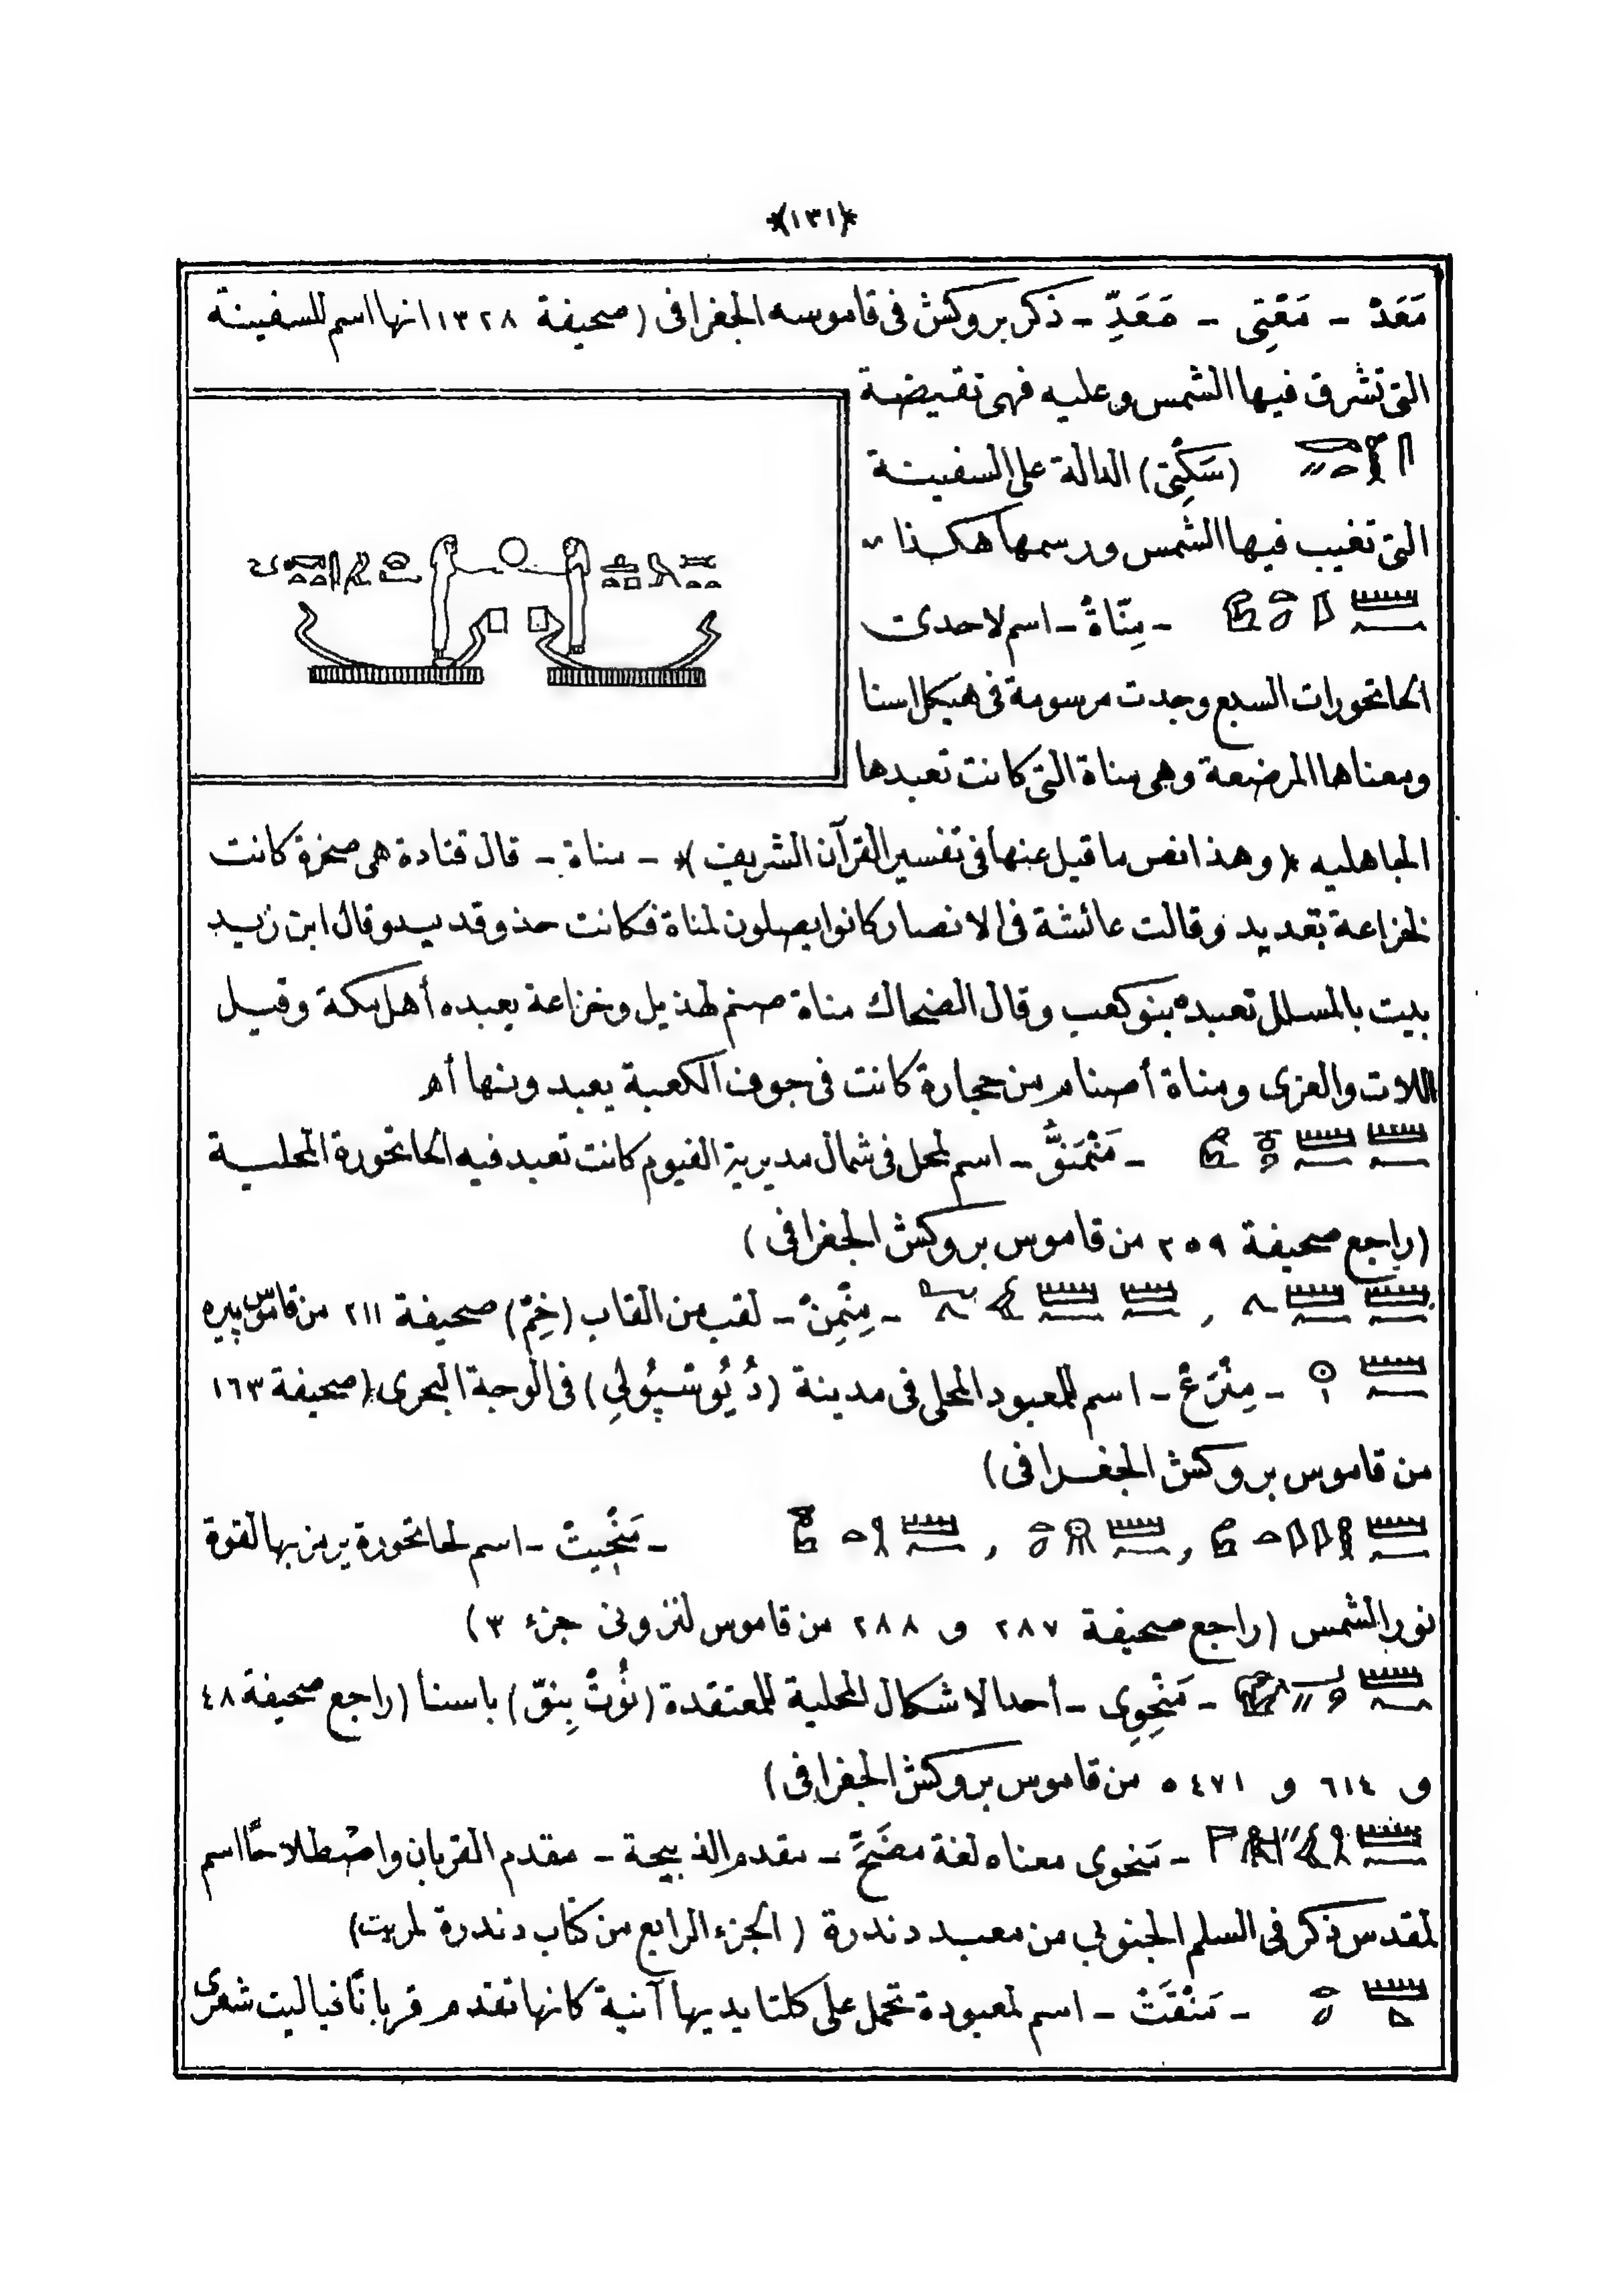 *(١٣١)*
مَعَدْ - مَعْتِى - مَعَدِّ - ذكر بروكش فى قاموسه الجغرافى (صحيفة ١٣٢٨ انها اسم للسفينة
التى تشرق فيها الشمس وعليه فهى نقيضة
(سَكِتى) الدالة على السفينة
التى تغيب فيها الشمس ورسمها هكذا
- مِنّاةْ - اسم لاحدى
الحاتحورات السبع وجدت مرسومة فى هيكل اسنا
ومعناها المرضعة وهى مناة التى كانت تعبدها
الجاهليه *(وهذا نص ما قيل عنها فى تفسير القرآن الشريف)* - مناة - قال قتادة هى صخرة كانت
لخزاعة بقديد وقالت عائشة فى الانصار كانوا يصلون لمناة فكانت حذو قديد وقال ابن زيد
بيت بالمسلل تعبده بنو كعب وقال الضحاك مناة صنم لهذيل وخزاعة يعبده أهل مكة وقيل
اللات والعزى ومناة أصنام من حجارة كانت فى جوف الكعبة يعبدونها أهـ
- مَنْمَنقُّ - اسم لمحل فى شمال مديرية الفيوم كانت تعبد فيه الحاتحورة المحلية
(راجع صحيفة ٢٥٩ من قاموس بروكش الجغرافى)
- مِنْمِنْ - لقب من القاب (خِمّ) صحيفة ٢١١ من قاموس پيره
- مِنْرَعْ - اسم للمعبود المحلى فى مدينة (دُيُوسْپُولِي) فى الوجه البحرى (صحيفة ١٦٣
من قاموس بروكش الجغرافى)
- مَنْحِيتْ - اسم لحاتحورة يرمز بها لقوة
نور الشمس (راجع صحيفة ٢٨٧ و ٢٨٨ من قاموس لنزونى جزء ٣)
- مَنْحِوِى - احد الاشكال المحلية للمعتقدة (نُوتْ بِنوّ) باسنا (راجع صحيفة ٤٨
و ٦١٤ و ٥٤٧١ من قاموس بروكش الجغرافى)
- مَنحوى معناه لغة مضَحٍّ - مقدم الذبيحة - مقدم القربان واصْطلاحًا اسم
لمقدس ذكر فى السلم الجنوبي من معبد دندرة (الجزء الرابع من كتاب دندرة لمريت)
- مَنْقَتْ - اسم لمعبودة تحمل على كلتا يديها آنية كانها تقدم قربانًا فياليت شعرى